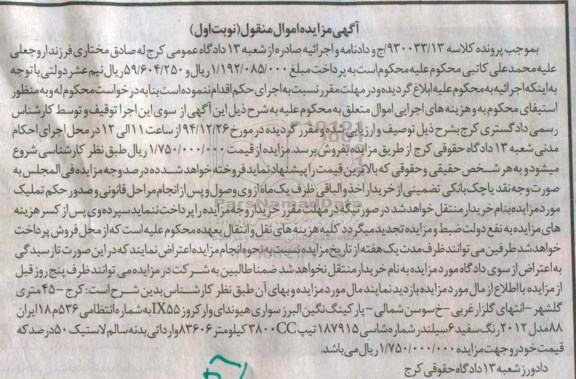 آگهی مزایده اموال منقول (نوبت اول)
بموجب پرونده کلاسه ۹۳۰۰۳۳/۱۳/ج و دادنامه و اجرائیه صادره از شعبه ۱۳ دادگاه عمومی کرج له صادق مختاری فرزند اروجعلی
علیه محمدعلی کاتبی محکوم علیه محکوم است به پرداخت مبلغ ۱/۱۹۲/۰۸۵/۰۰۰ ریال و ۵۹/۶۰۴/۲۵۰ ریال نیم عشر دولتی با توجه
به اینکه اجرائیه به محکوم علیه ابلاغ گردیده و در مهلت مقرر نسبت به اجرای حکم اقدام ننموده است بنا به درخواست محکوم له و به منظور
استیفای محکوم به و هزینه های اجرایی اموال متعلق به محکوم علیه به شرح ذیل این آگهی از سوی این اجرا توقیف و توسط کارشناس
رسمی دادگستری کرج بشرح ذیل توصیف و ارزیابی گردیده و مقرر گردیده در مورخ ۹۴/۱۲/۲۶ از ساعت ۱۱ الی ۱۲ در محل اجرای احکام
مدنی شعبه ۱۳ دادگاه حقوقی کرج از طریق مزایده بفروش برسد. مزایده از قیمت ۱/۷۵۰/۰۰۰/۰۰۰ ریال طبق نظر کارشناسی شروع
میشود و به هر شخص حقیقی و حقوقی که بالاترین قیمت را پیشنهاد نماید فروخته خواهد شد ده درصد وجه مزایده فی المجلس به
صورت وجه نقد یا چک بانکی تضمینی از خریدار اخذ و الباقی ظرف یک ماه از وی وصول و پس از انجام مراحل قانونی و صدور حکم تملیک
مورد مزایده بنام خریدار منتقل خواهد شد در صورتیکه در مهلت مقرر خریدار وجه مزایده را پرداخت ننماید سپرده وی پس از کسر هزینه
های مزایده به نفع دولت ضبط و مزایده تجدید میگردد کلیه هزینه های نقل و انتقال بعهده محکوم علیه است که از محل فروش پرداخت
خواهد شد طرفین می توانند ظرف مدت یک هفته از تاریخ مزایده نسبت به نحوه انجام مزایده اعتراض نمایند که در این صورت تا رسیدگی
به اعتراض از سوی دادگاه مورد مزایده به نام خریدار منتقل نخواهد شد ضمنا طالبین به شرکت در مزایده می توانند ظرف پنج روز قبل
از مزایده با اطلاع از مال مورد مزایده بازدید نمایند مال مورد مزایده و بهای آن طبق نظر کارشناس بدین شرح است: کرج - ۴۵ متری
گلشهر - انتهای گلزار غربی - خ سوسن شمالی - پارکینگ نگین البرز سواری هیوندای وارکروز IX55 به شماره انتظامی ۵۳۶م۱۸ ایران
۸۸ مدل ۲۰۱۲ رنگ سفید ۶ سیلندر شماره شاسی ۱۸۷۹۱۵ تیپ ۳۸۰۰CC کیلومتر ۸۳۶۰۶ وارداتی بدنه سالم لاستیک ۵۰ درصد که
قیمت خودرو جهت مزایده ۱/۷۵۰/۰۰۰/۰۰۰ ریال می باشد.
دادورز شعبه ۱۳ دادگاه حقوقی کرج
ParsNamadData